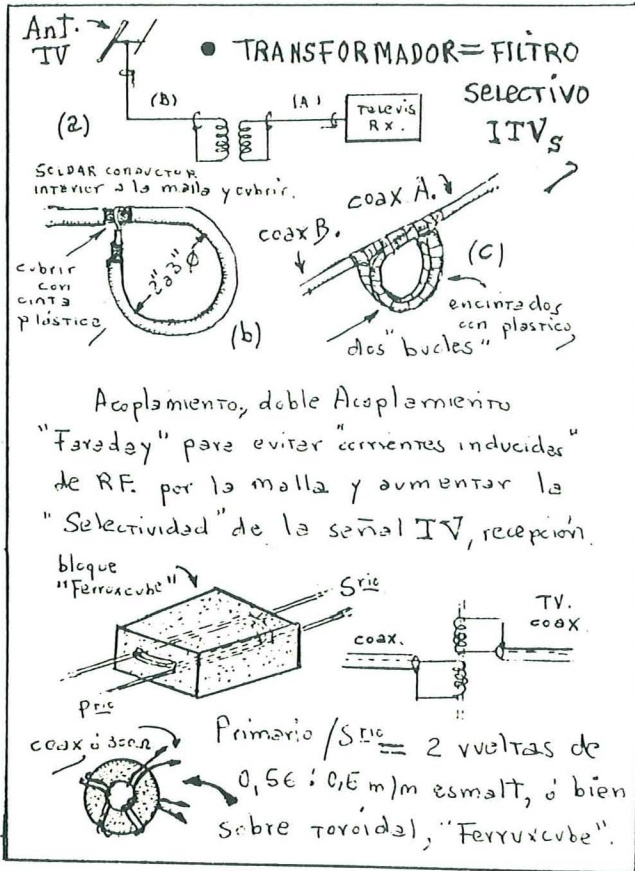 Ant.
TV
• TRANSFORMADOR = FILTRO
SELECTIVO
ITVs
(a)
(B)
(A)
Televis
RX.
SOLDAR CONDUCTOR
INTERIOR a la malla y cubrir.
cubrir
con
CINTA
plástica
2" a 3" Ø
(b)
coax A.
coax B.
(c)
encintados
con plastico
dos "bucles"
Acoplamiento, doble Acoplamiento
"Faraday" para evitar "corrientes inducidas"
de RF. por la malla y aumentar la
"Selectividad" de la señal TV, recepción.
bloque
"Ferruxcube"
Sric
Pric
coax.
TV.
coax
coax ó 300Ω
Primario / Sric = 2 vueltas de
m/m esmalt, ó bien
sobre toroidal, "Ferruxcube".